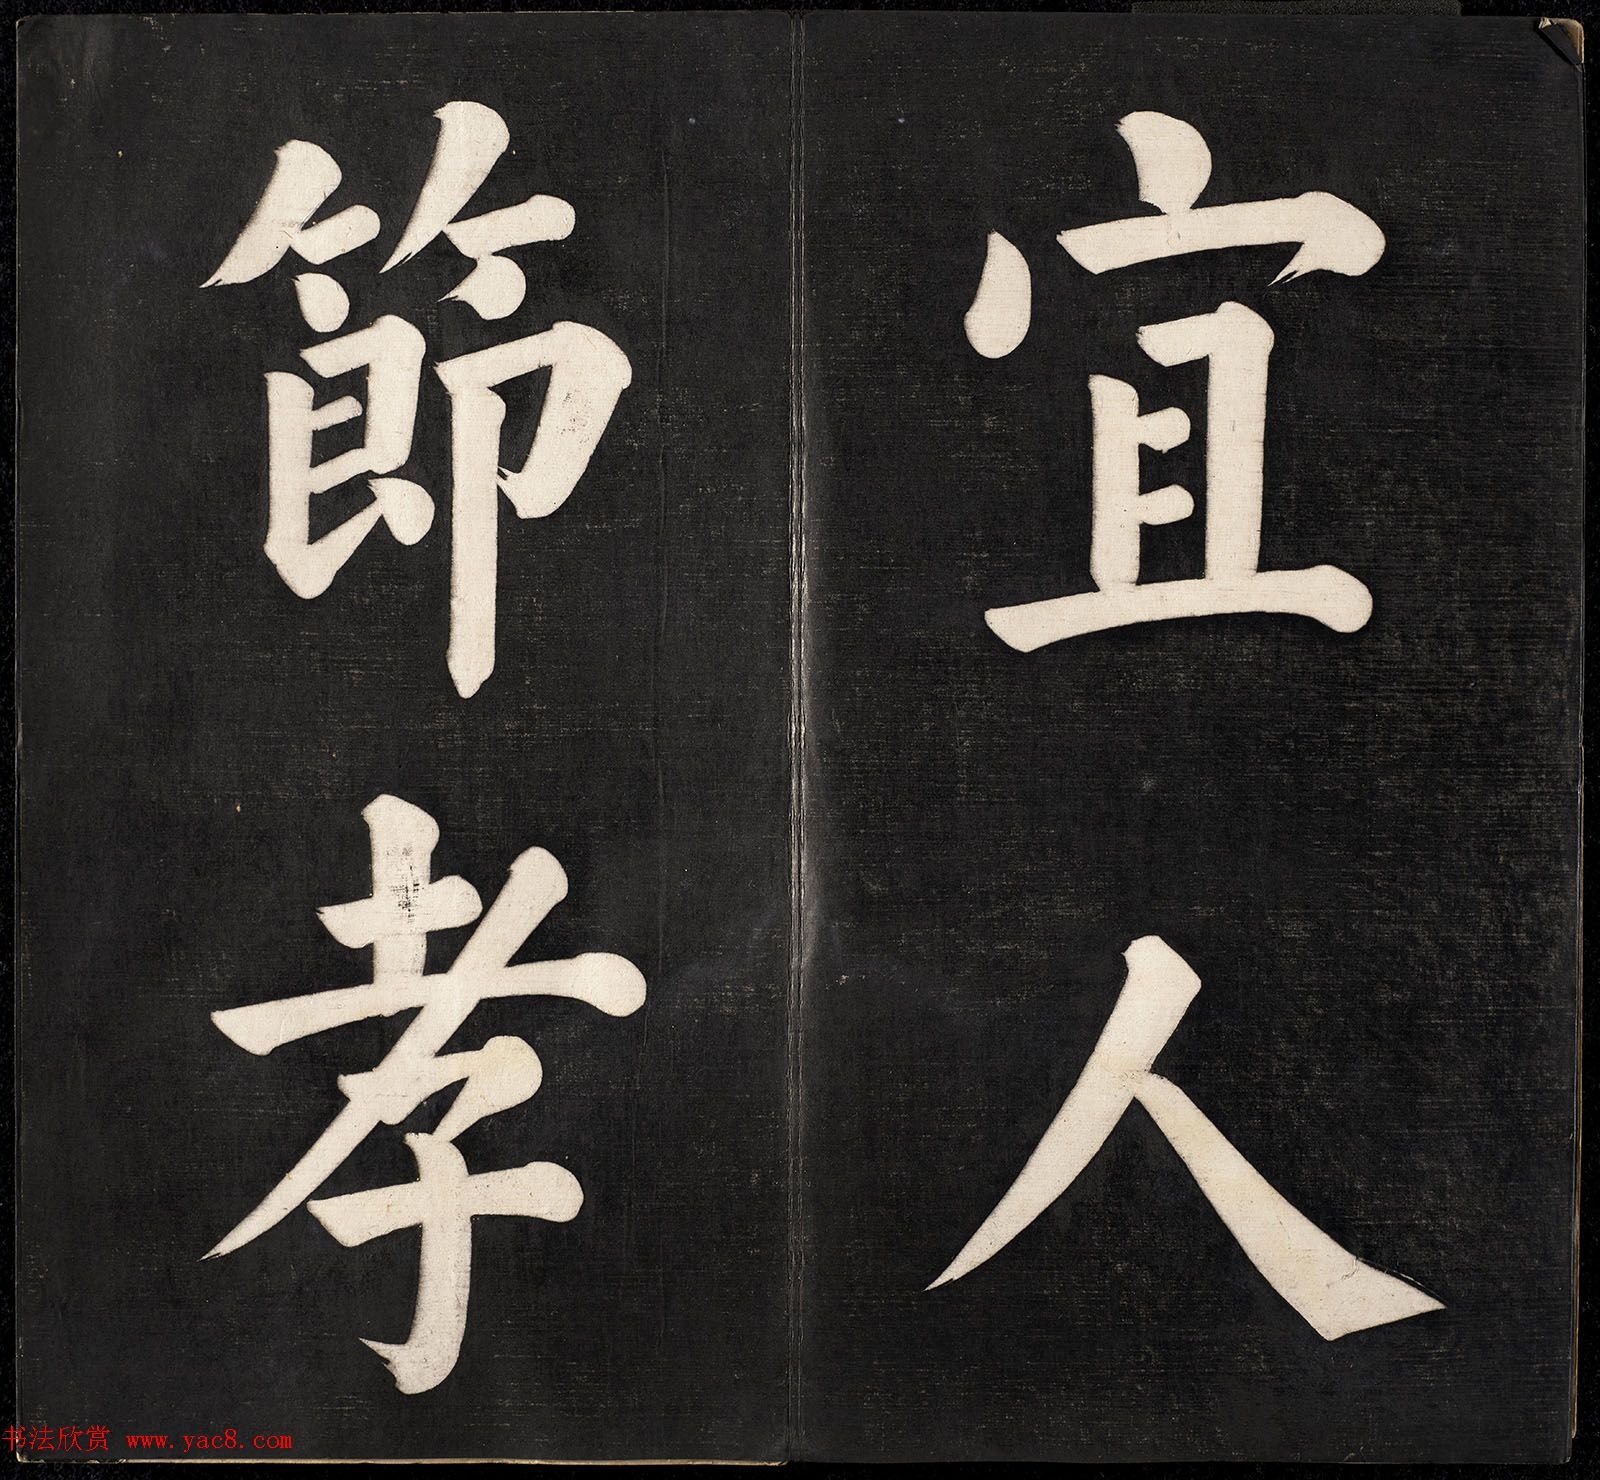 宜人
節孝
书法欣赏 www.yac8.com